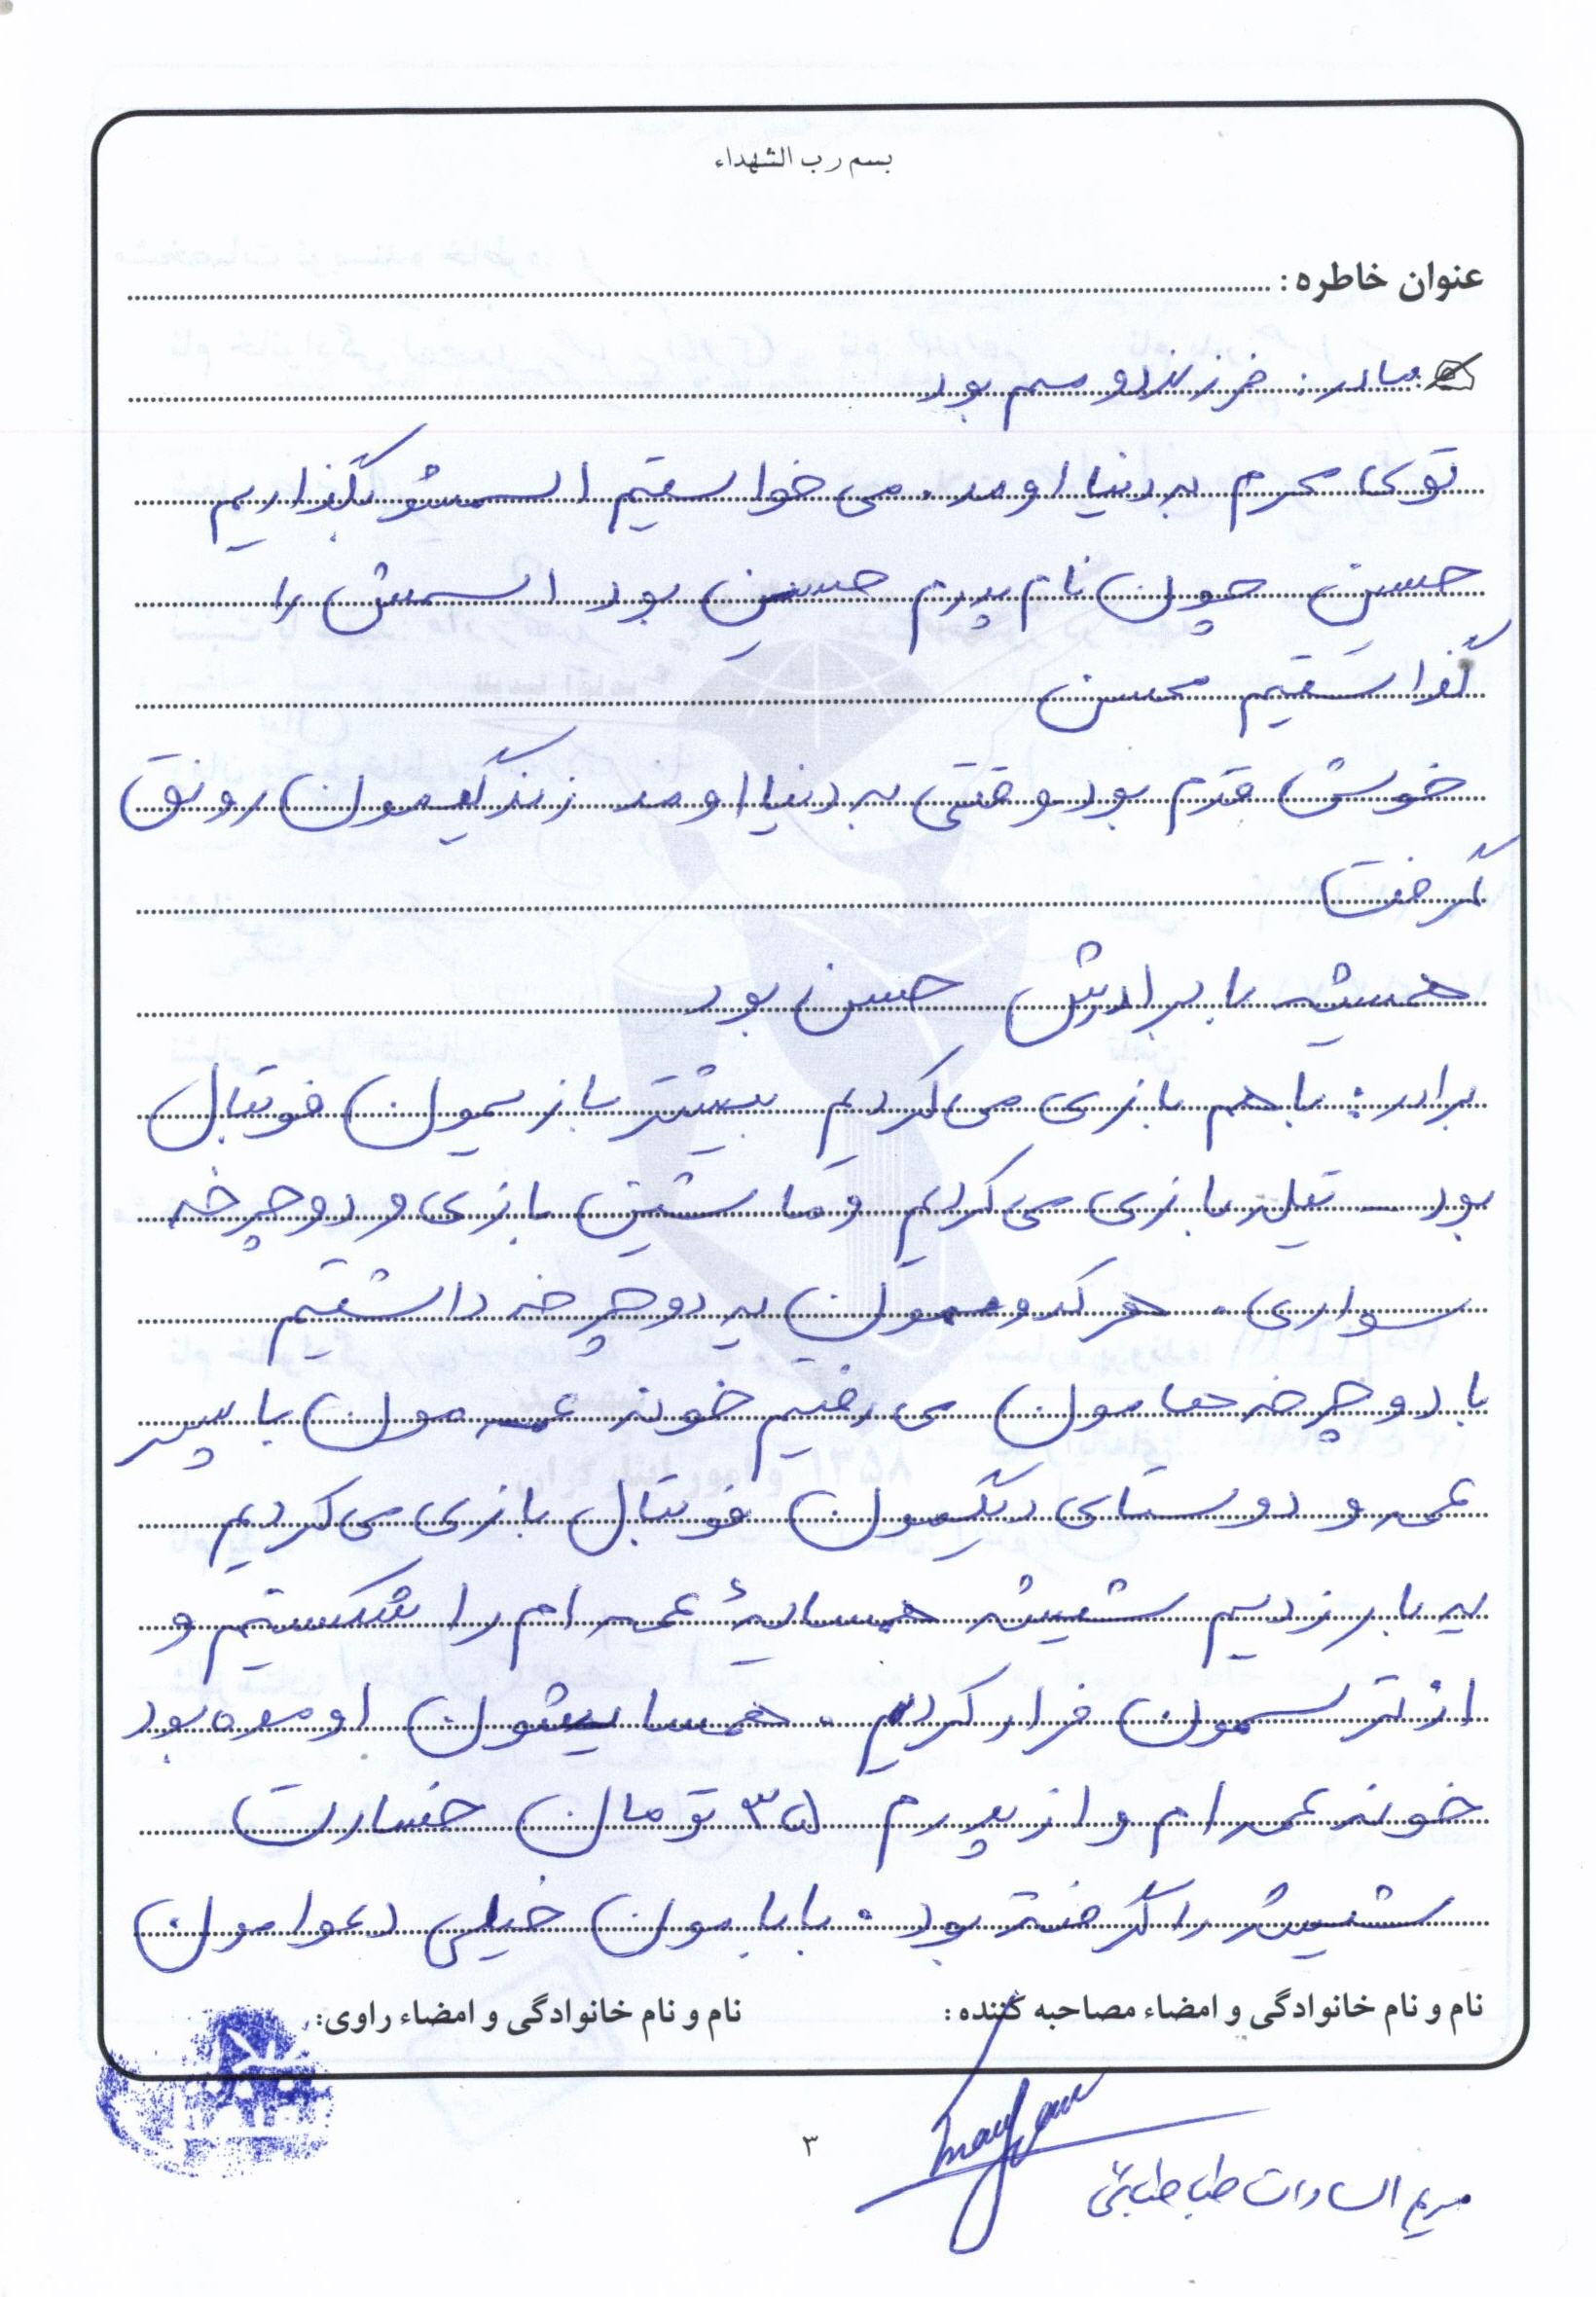 بسم رب الشهداء
عنوان خاطره :
مادر: فرزند دومم بود
توی محرم به دنیا اومد. می خواستیم اسمشو بگذاریم
حسین چون نام پدرم حسین بود اسمش را
گذاشتیم محسن
خوش قدم بود وقتی به دنیا اومد زندگیمون رونق
گرفت
همیشه با برادرش حسن بود
برادر: باهم بازی می کردیم بیشتر بازیمون فوتبال
بود - تیله بازی می کردیم و ماشین بازی و دوچرخه
سواری. هر کدوممون یه دوچرخه داشتیم
با دوچرخه هامون می رفتیم خونه عمه مون با پسر
عمه و دوستای دیگمون فوتبال بازی می کردیم
یه بار زدیم شیشه همسایۀ عمه ام را شکستیم و
از ترسمون فرار کردیم. همسایشون اومده بود
خونه عمه ام و از پدرم ۳۵ تومان خسارت
شیشه را گرفته بود. بابامون خیلی دعوامون
نام و نام خانوادگی و امضاء مصاحبه کننده :
نام و نام خانوادگی و امضاء راوی:
۳
مریم السادات طباطبائی